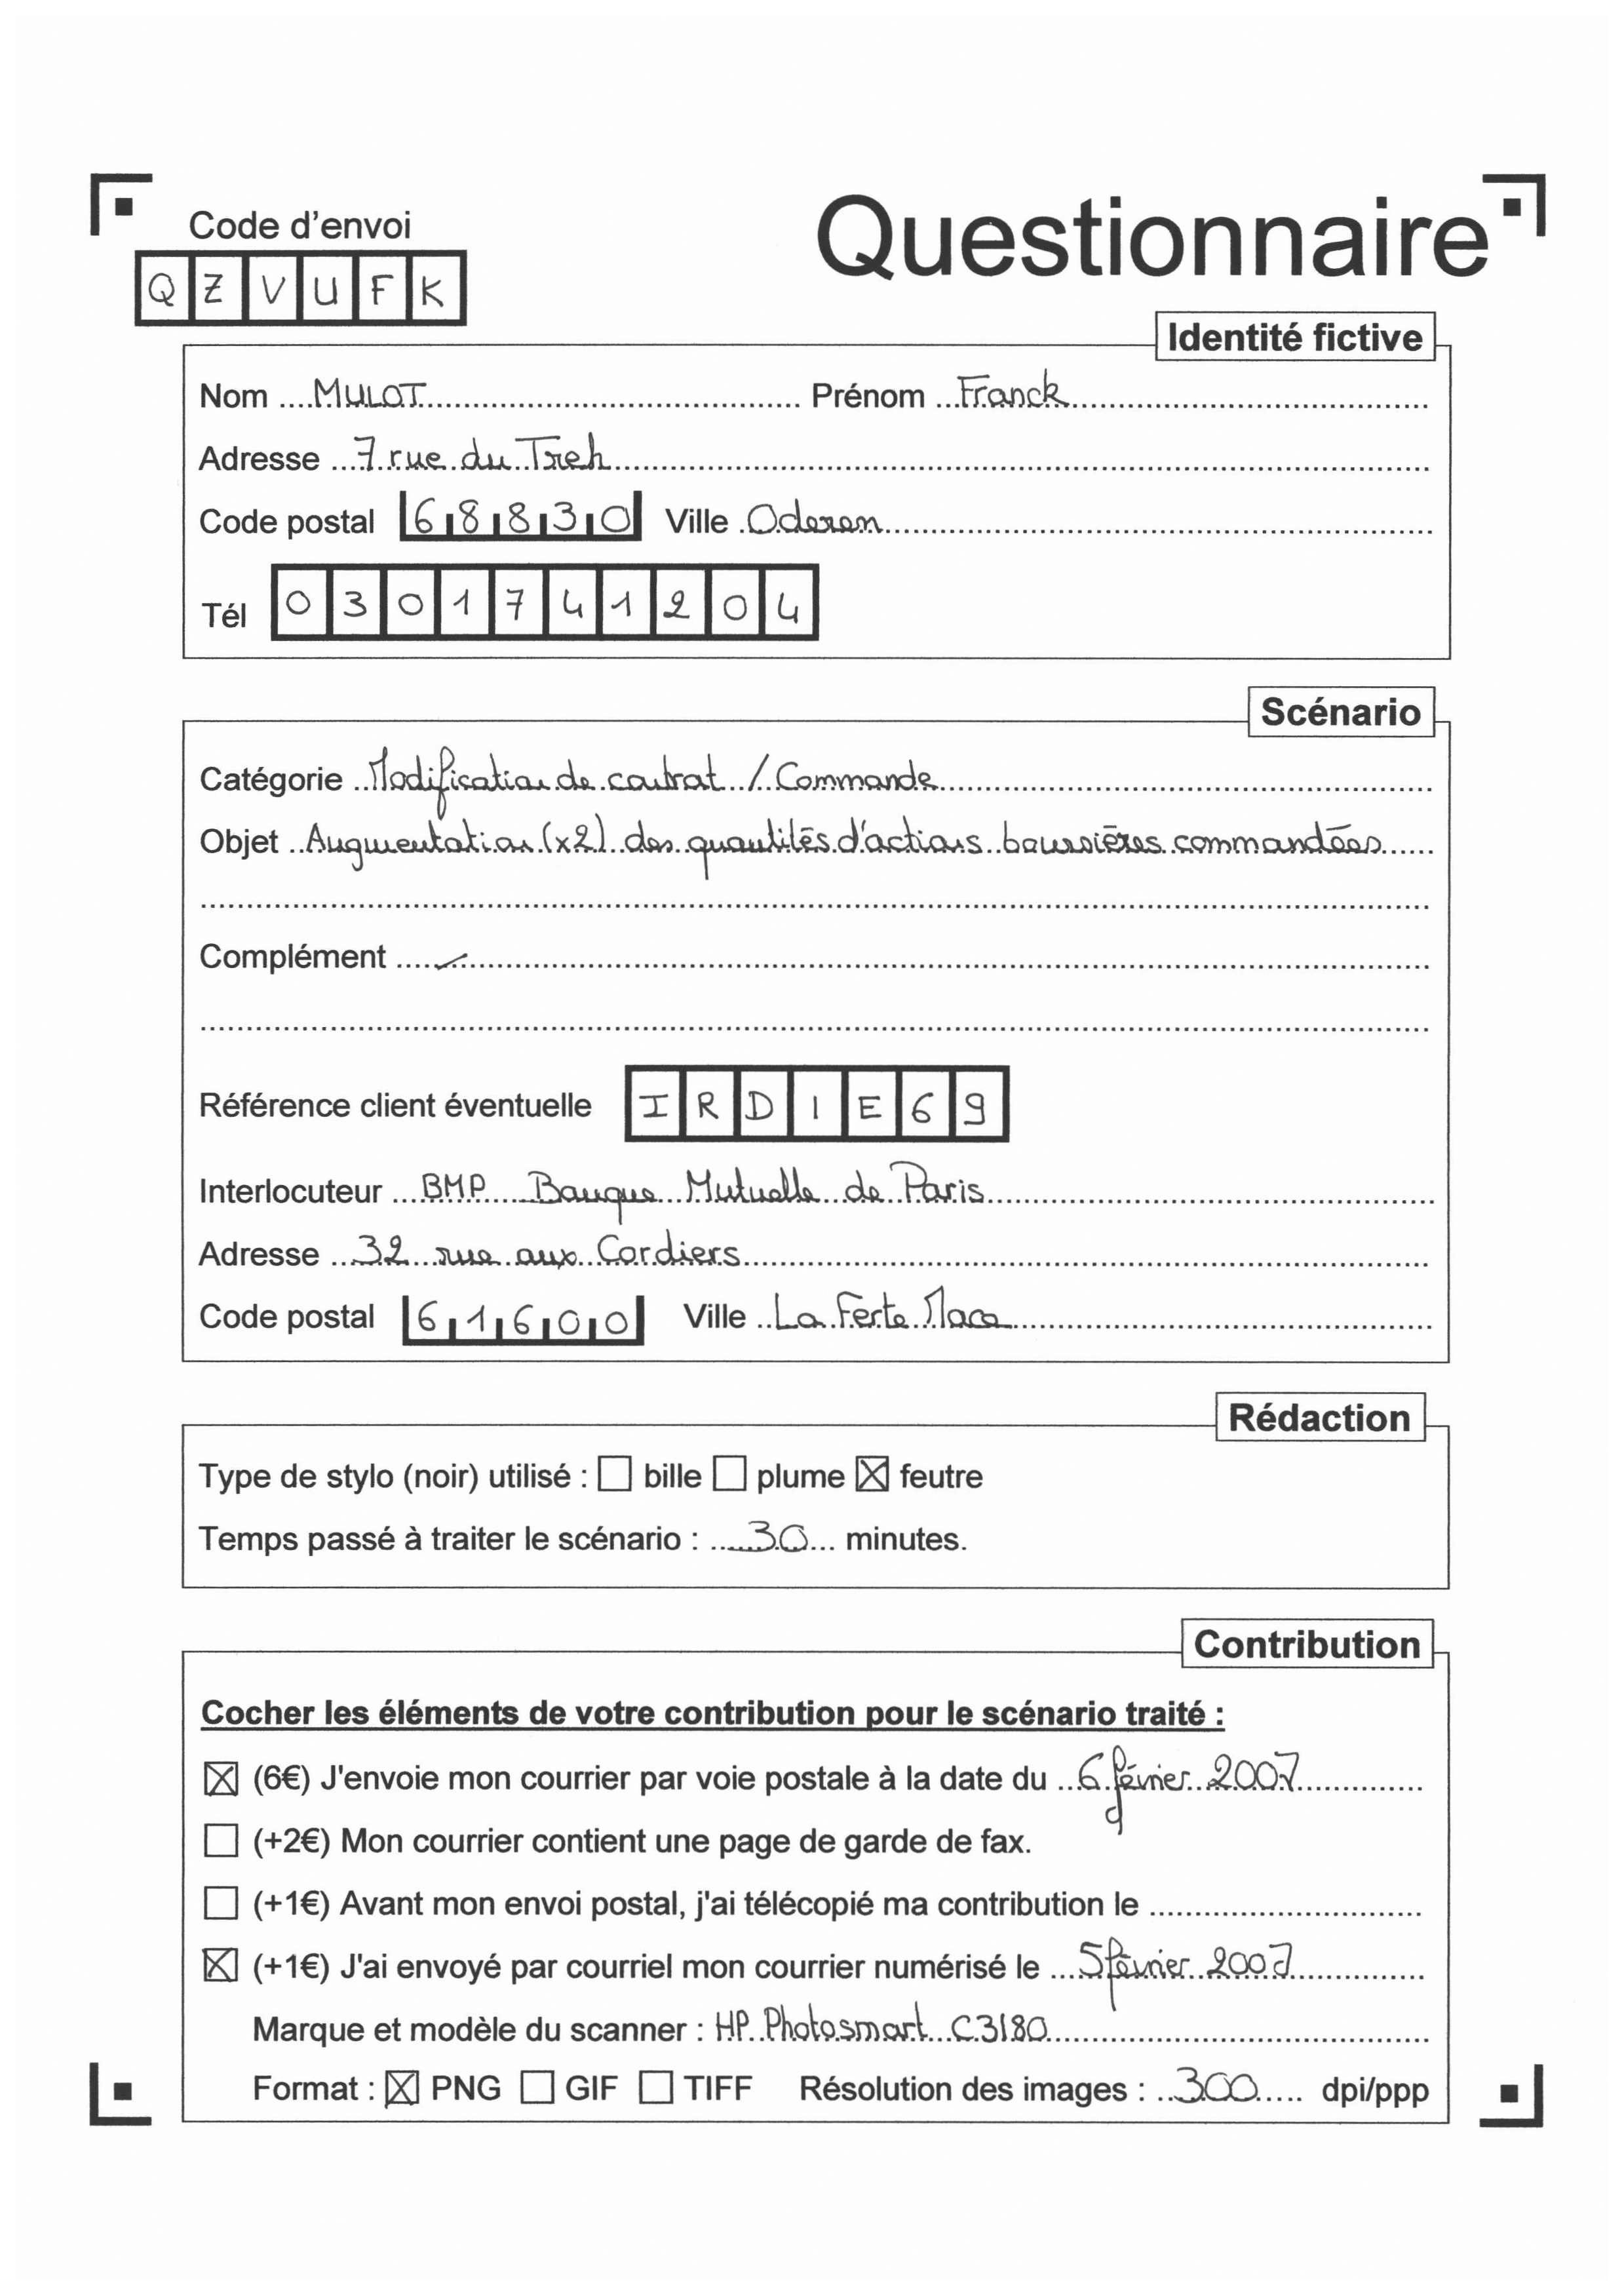 Code d'envoi
Questionnaire
QZVUFK
Identité fictive
Nom MULOT Prénom Franck
Adresse 7 rue du Treh
Code postal 68830 Ville Oderen
Tél 0301741204
Scénario
Catégorie Modification de contrat / Commande
Objet Augmentation (x2) des quantités d'actions boursières commandées
Complément
Référence client éventuelle IRDIE69
Interlocuteur BMP Banque Mutuelle de Paris
Adresse 32 rue aux Cordiers
Code postal 61600 Ville La Ferte Mace
Rédaction
Type de stylo (noir) utilisé : ☐ bille ☐ plume ☒ feutre
Temps passé à traiter le scénario : 30 minutes.
Contribution
Cocher les éléments de votre contribution pour le scénario traité :
☒ (6€) J'envoie mon courrier par voie postale à la date du 6 février 2007
☐ (+2€) Mon courrier contient une page de garde de fax.
☐ (+1€) Avant mon envoi postal, j'ai télécopié ma contribution le
☒ (+1€) J'ai envoyé par courriel mon courrier numérisé le 5 février 2007
Marque et modèle du scanner : HP Photosmart C3180
Format : ☒ PNG ☐ GIF ☐ TIFF Résolution des images : 300 dpi/ppp